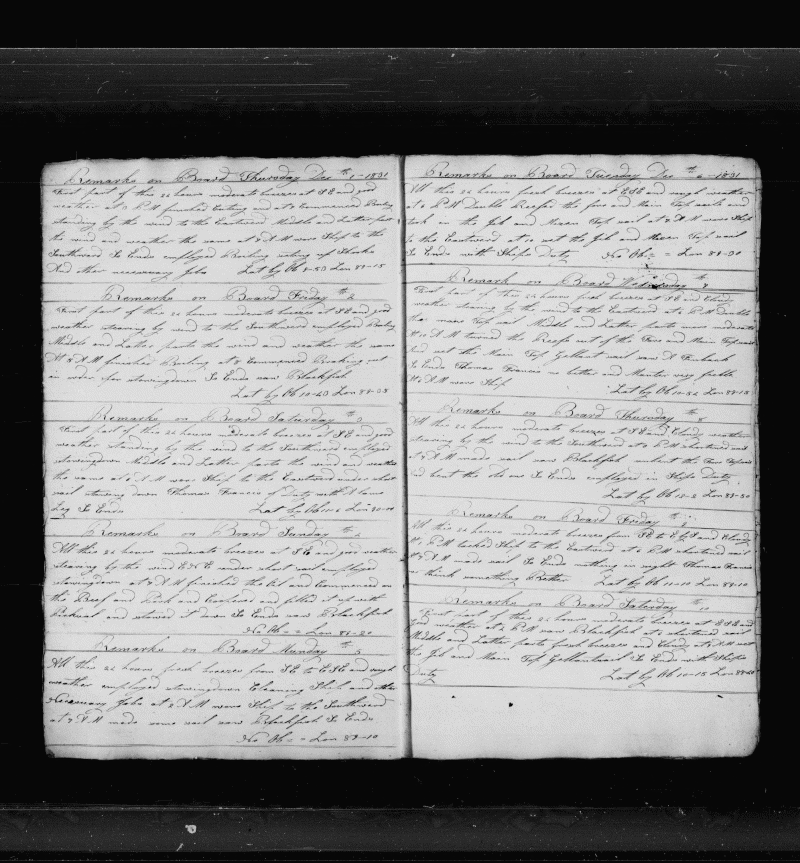 Remarks on Board Thursday Dec th 1-1831
First part of this 24 hours moderate breezes at SE and good
weather at 2 PM finished cuting and at 3 Commenced Boiling
standing by the wind to the Eastward Middle and Latter part
the wind and weather the same at 8 AM wore Ship to the
Southward So Ends employed Boiling
And other necessary Jobs Lat by Ob 11-50 Lon 88-15
Remarks on Board Friday th 2
First part of this 24 hours moderate breezes at SE and good
weather stearing by wind to the Southward employed Boiling
Middle and Latter parts the wind and weather the same
At 8 AM finished Boiling at 9 Commenced Breaking out
in order for stowingdown So Ends saw Blackfish
Lat by Ob 12-43 Lon 88-38
Remarks on Board Saturday 3
First part of this 24 hours moderate breezes at SE and good
weather standing by the wind to the Southward employed
stowingdown Middle and Latter parts the wind and weather
the same at AM wore Ship to the Eastward under short
sail stowing down Thomas Francis of duty with A lame
Leg So Ends Lat by Ob
Remarks on Board Sunday th 4
All this 24 hours moderate breezes at SE and good weather
stearing by the wind ENE under short sail employed
stowingdown at 9 AM finished the Oil and Commenced on
the Beef and Pork and and filled it up with
and stowed it down So Ends saw Blackfish
No Ob = = Lon 88-20
Remarks on Board Monday th 5
All this 24 hours fresh breezes from SE to ESE and rough
weather employed stowingdown Cleaning Ship and other
Necessary Jobs at 2 AM wore Ship to the Southward
at 7 AM made some sail saw Blackfish So Ends
No Ob = = Lon 89-10
Remarks on Board Tuesday Dec th 6-1831
All this 24 hours fresh breezes at ESE and rough weather
at 6 PM Double Reefed the fore and Main Top sails and
took in the Jib and Mizen Top sail at 7 AM wore Ship
to the Eastward at 10 set the Jib and Mizen Top sail
So Ends with Ships Duty No Ob = = Lon 88-30
Remark on Board Wednesday th
First part of this 24 hours fresh breezes at SE and Cloudy
weather stearing by the wind to the Eastward at 6 PM double
the main Top sail Middle and Latter parts more moderate
At 10 AM turned the Reefs out of the Fore and Main Topsails
And set the Main Top Gallant sail saw A Finback
So Ends Thomas Francis no better and Hunter very feeble
At 8 AM wore Ship Lat by Ob 12-52 Lon 88-18
Remarks on Board Thursday 8
All this 24 hours moderate breezes at SE and Cloudy weather
stearing by the wind to the Southward at 6 PM shortened sail
at 5 AM made sail saw Blackfish unbent the Fore Topsail
and bent the old one So Ends employed in Ships Duty
Lat by Ob 12-2 Lon 88-50
Remarks on Board Friday th
All this 24 hours moderate breezes from SE to E b S and Cloudy
At 2 PM tacked Ship to the Eastward at 6 PM shortened sail
At 5 AM made sail So Ends nothing in sight Thomas Francis
we think something Better Lat by Ob 11-10 Lon 88-10
Remarks on Board Saturday th 10
First part of this 24 hours moderate breezes at ESE and
good weather at 2 PM saw Blackfish at 6 shortened sail
Middle and Latter parts fresh breezes and Cloudy at 5 AM set
the Jib and Main Top Gallantsail So Ends with Ships
Duty Lat by Ob 10-15 Lon